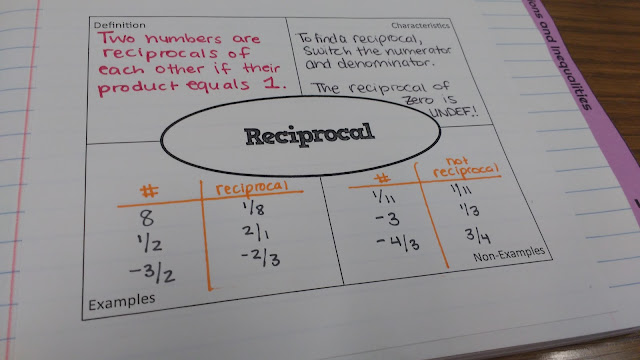 Definition
Two numbers are
reciprocals of
each other if their
product equals 1.
Characteristics
To find a reciprocal,
switch the numerator
and denominator.
The reciprocal of
zero is
UNDEF!!
Reciprocal
# reciprocal
8 1/8
1/2 2/1
-3/2 -2/3
Examples
# not reciprocal
1/11 1/11
-3 1/3
-4/3 3/4
Non-Examples
and Inequalities